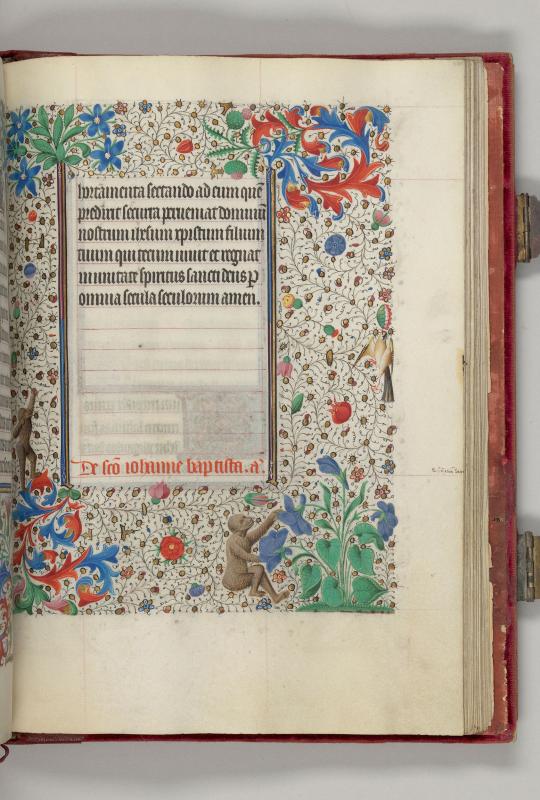 iuvamenta sectando ad eum quē
predixit secura perveniat dominū
nostrum ihesum xpistum filium
tuum qui tecum vivit et regnat
in unitate spiritus sancti deus p̄
omnia secula seculorum amen.
De scō iohanne baptista. a̅.